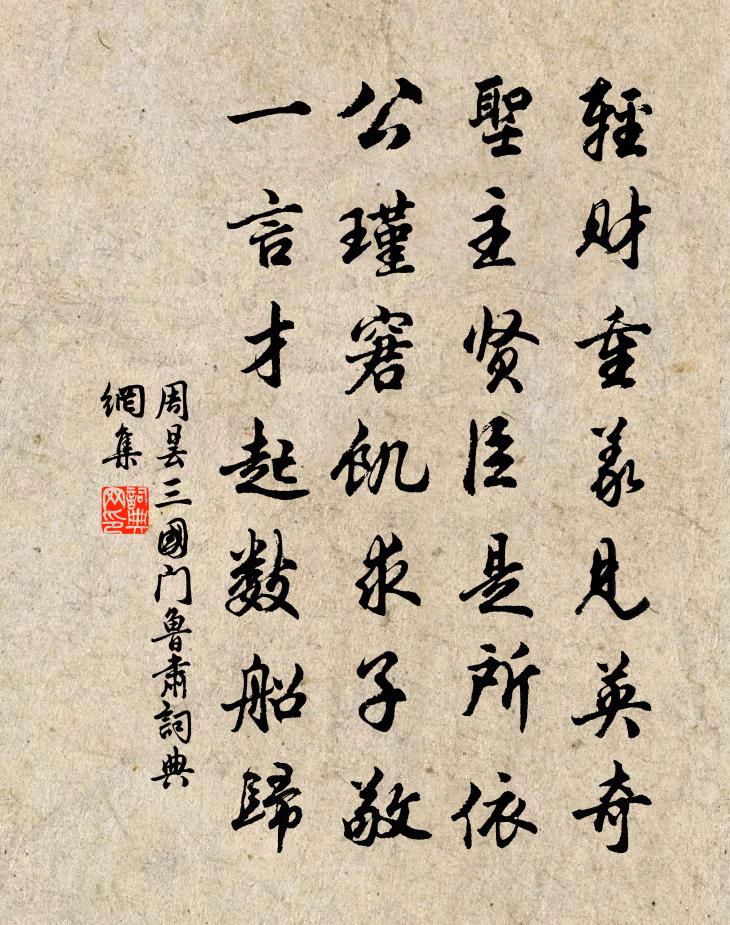 輕财重義見英奇
聖主贤臣是所依
公瑾窘飢求子敬
一言才起數船歸
周昙三國门魯肅詞典
網集
詞典
网印